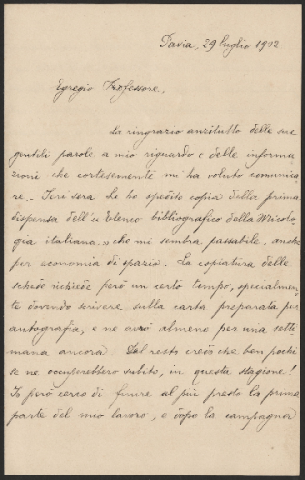 Pavia, 29 luglio 1912
Egregio Professore,
La ringrazio anzitutto delle sue
gentili parole a mio riguardo e delle informa
zioni che cortesemente mi ha voluto comunica
re. - Ieri sera Le ho spedito copia della prima
dispensa dell'« Elenco bibliografico della Micolo
gia italiana » che mi sembra passabile, anche
per economia di spazio. La copiatura delle
schede richiede però un certo tempo, specialmen
te dovendo scrivere sulla carta preparata per
autografia, e ne avrò almeno per una setti
mana ancora. Del resto credo che ben pochi
se ne occuperebbero subito, in questa stagione!
Io però cerco di finire al più presto la prima
parte del mio lavoro, e dopo la campagna